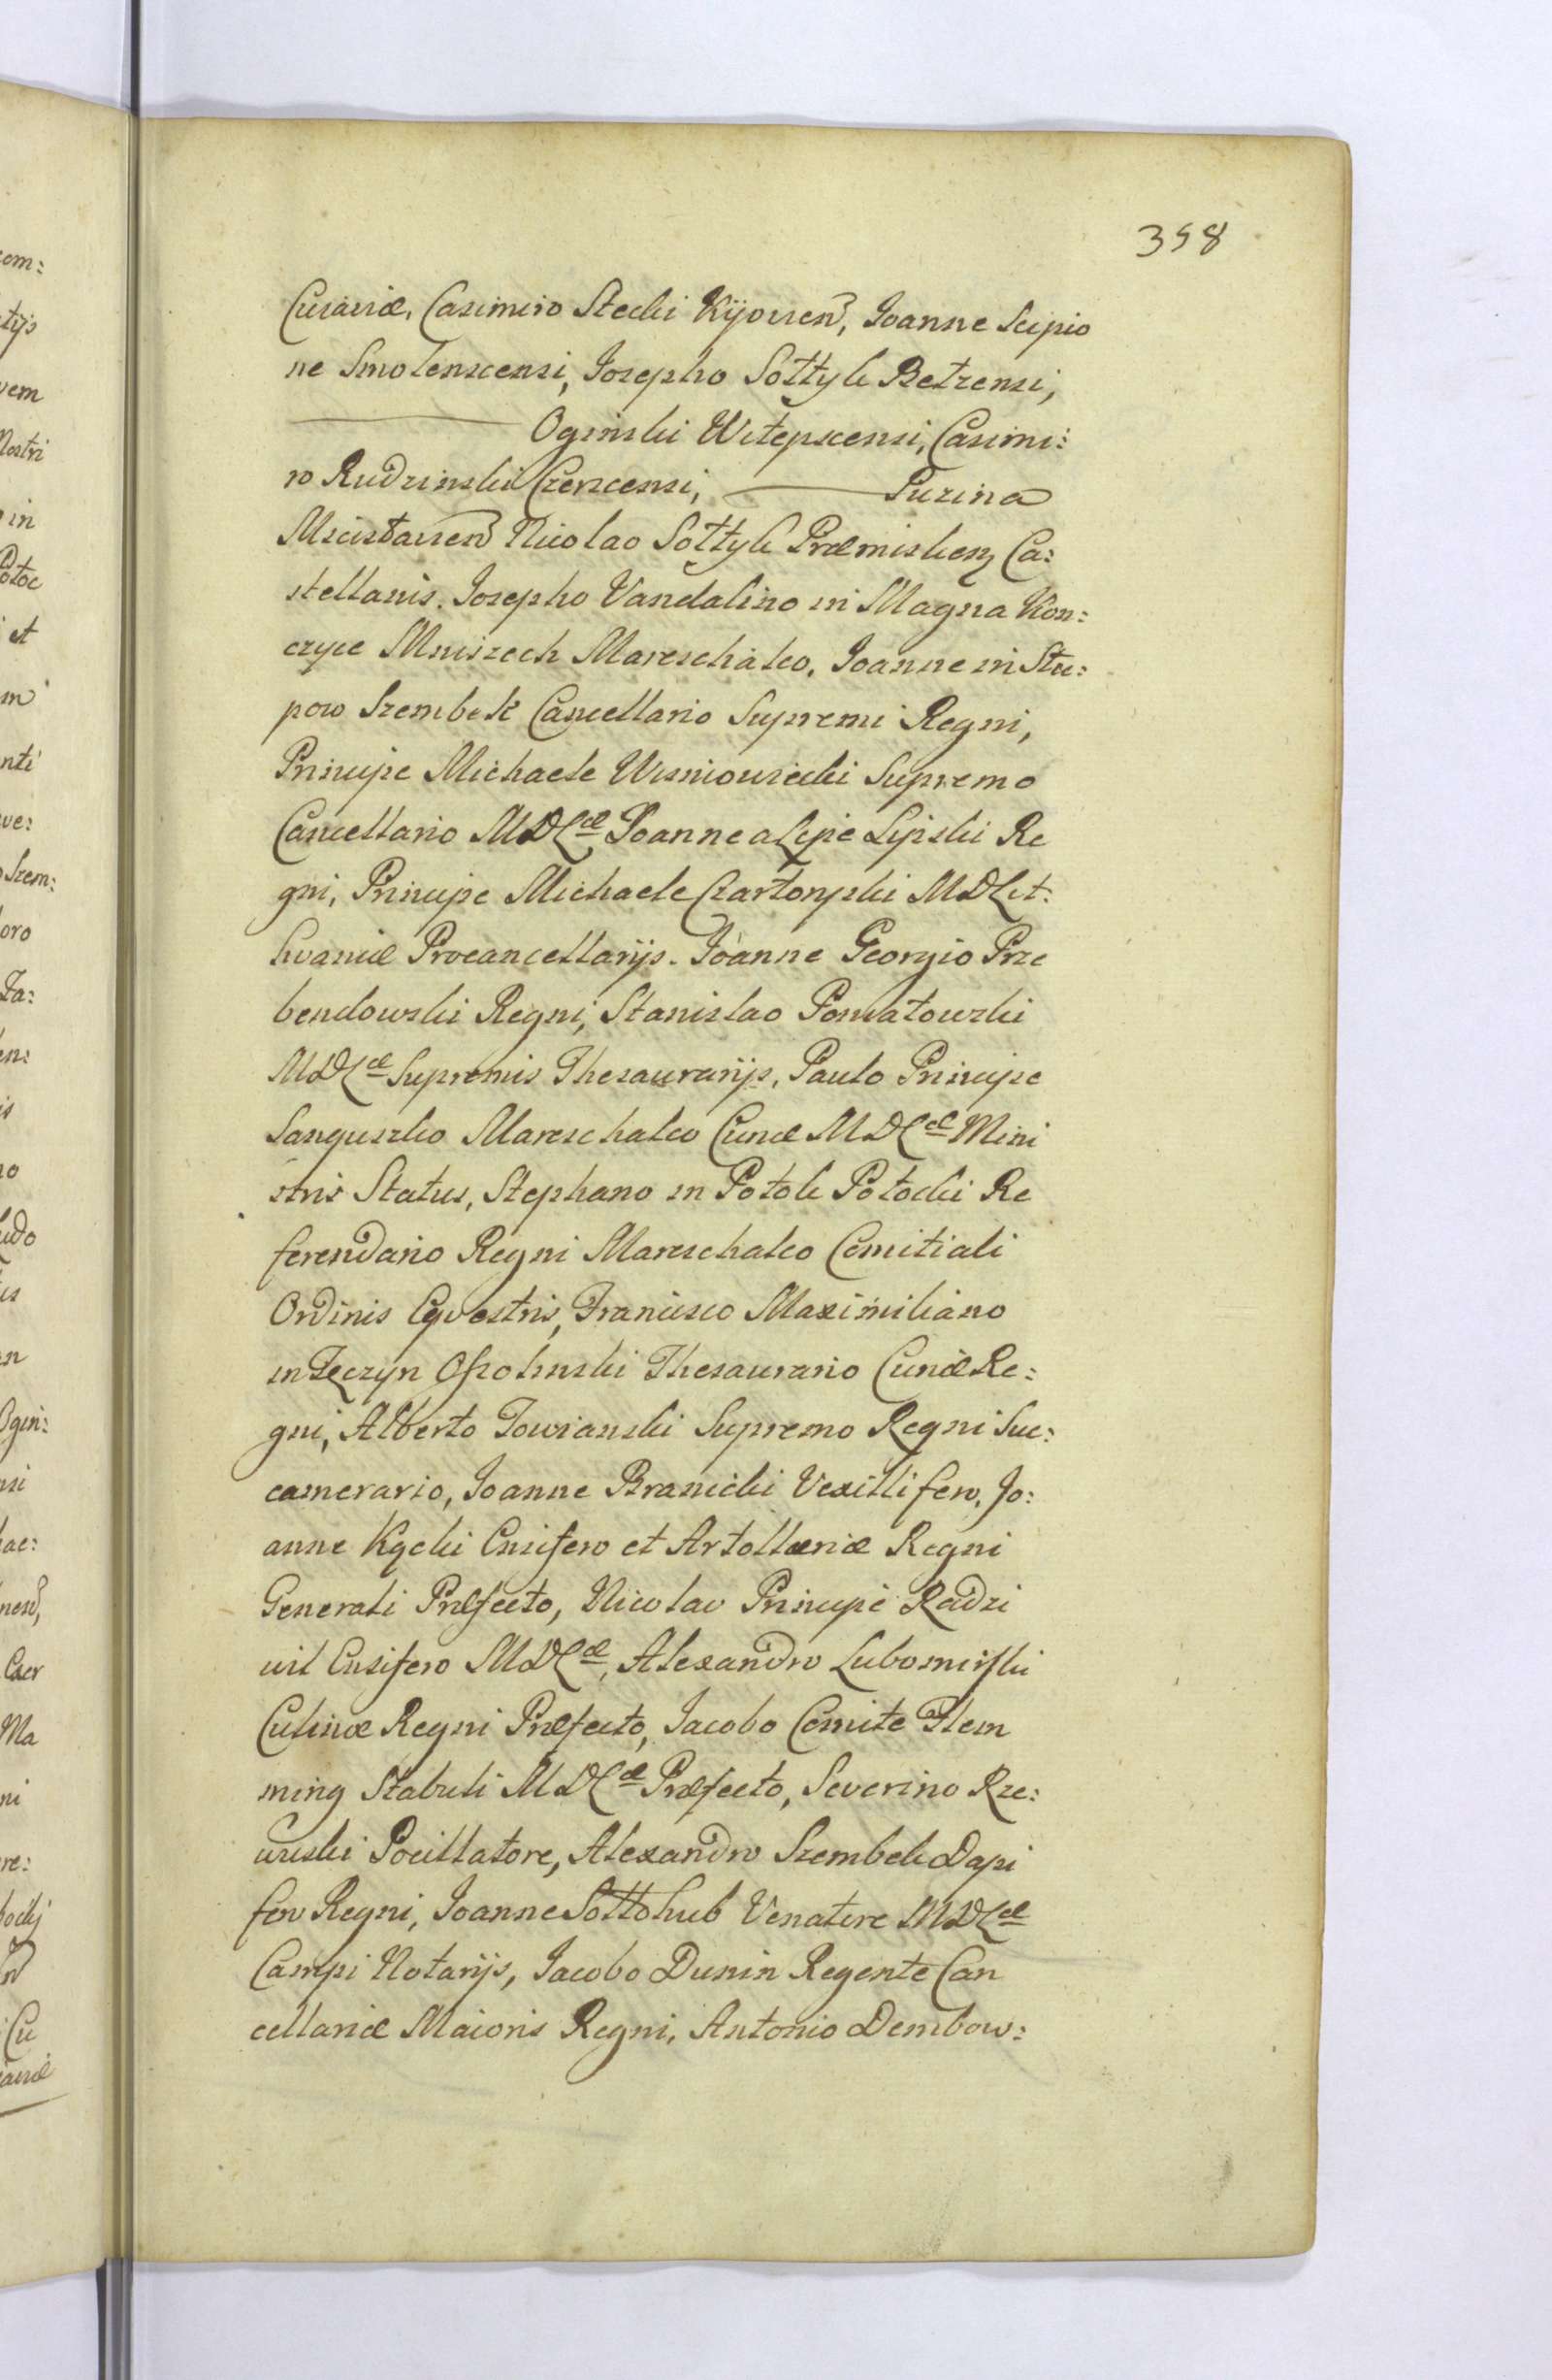 358
Cuiaviæ, Casimiro Stecki Kijovien, Joanne Scipio
ne Smolenscensi, Josepho Sołtyk Bełzensi,
Oginski Witepscensi, Casimi:
ro Rudzinski Czerscensi, Puzina
Mścisłavien Nicolao Sołtyk Præmislien Ca:
stellanis. Josepho Vandalino in Magna Kon:
czyce Mniszech Mareschalco, Joanne in Słu:
pow Szembek Cancellario Supremi Regni,
Principe Michaele Wisniowiecki Supremo
Cancellario MDLæ Joanne a Lipie Lipski Re
gni, Principe Michaele Czartoryski MDLit:
hvaniæ Procancellarijs. Joanne Georgio Prze
bendowski Regni, Stanislao Poniatowski
MDLæ Supremis Thesaurarijs, Paulo Principe
Sanguszko Mareschalco Curiæ MDLæ Mini
stris Status, Stephano in Potok Potocki Re
ferendario Regni Mareschalco Comitiali
Ordinis Eqvestris, Francisco Maximiliano
in Tęczyn Ossolinski Thesaurario Curiæ Re:
gni, Alberto Towianski Supremo Regni Suc:
camerario, Joanne Branicki Vexillifero, Jo:
anne Kącki Ensifero et Artollæriæ Regni
Generali Præfecto, Nicolao Principe Radzi
wil Ensifero MDLæ, Alexandro Lubomirski
Culinæ Regni Præfecto, Jacobo Comite Flem
ming Stabuli MDLæ Præfecto, Severino Rze:
wuski Pocillatore, Alexandro Szembek Dapi
fero Regni, Joanne Sołłohub Venatore MDLæ
Campi Notarijs, Jacobo Dunin Regente Can
cellariæ Maioris Regni, Antonio Dembow: